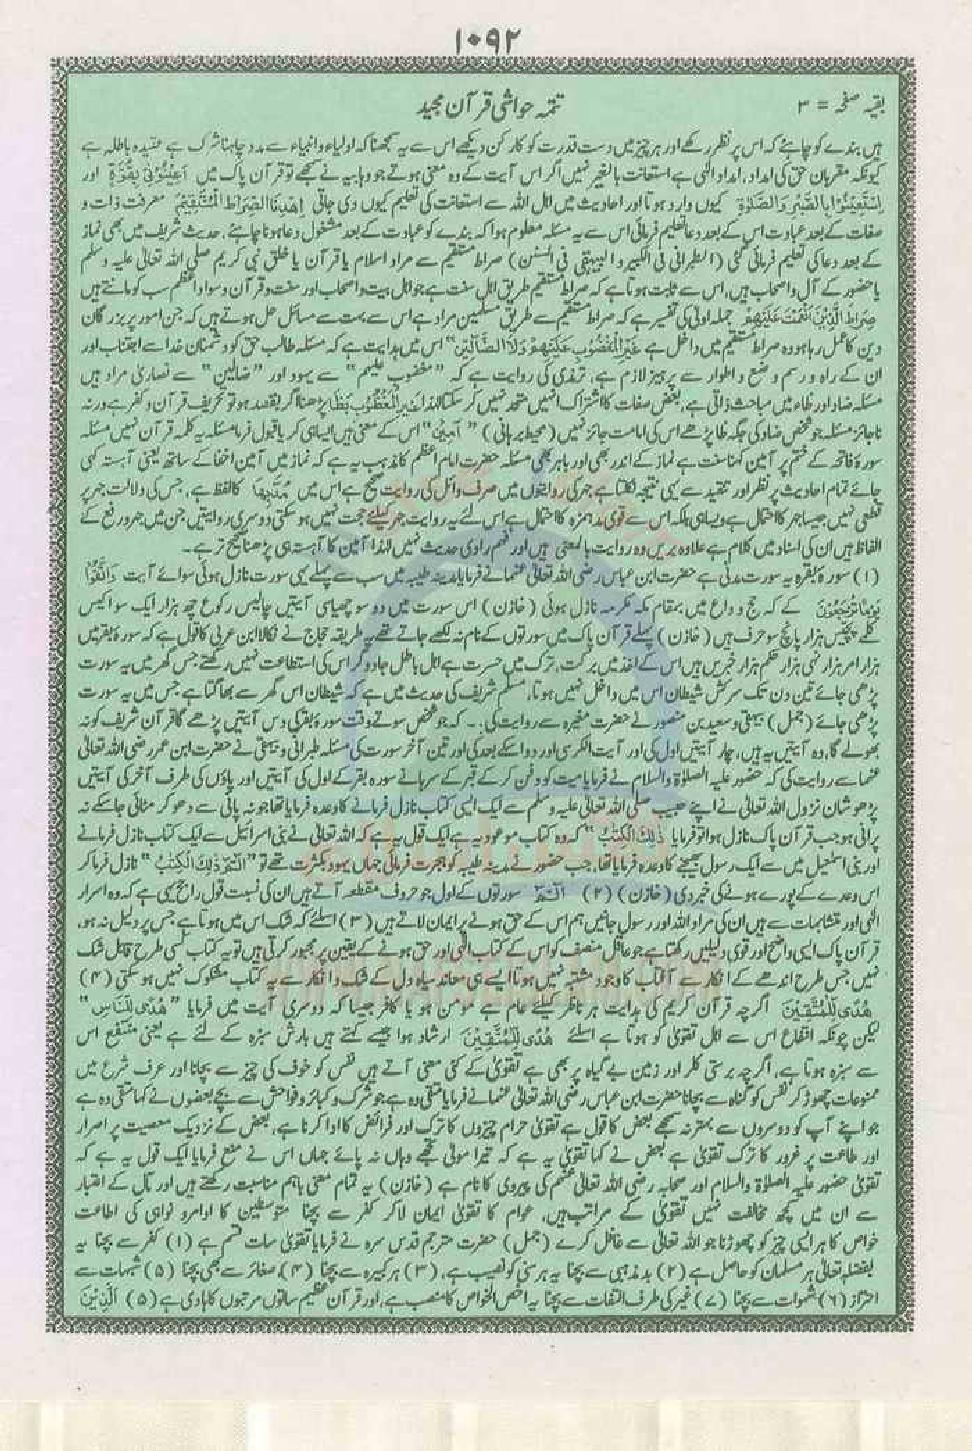 ۱۰۹۲
بقیہ صفحہ = ۳ تتمہ حواشی قرآن مجید
ہیں بندے کو چاہئے کہ اس پر نظر رکھے اور ہر چیز میں دست قدرت کو کارکن دیکھے اس سے یہ سمجھنا کہ اولیاء و انبیاء سے مدد چاہنا شرک ہے عقیدہ باطلہ ہے
کیونکہ مقربان حق کی امداد، امداد الٰہی ہے استعانت بالغیر نہیں اگر اس آیت کے وہ معنی ہوتے جو وہابیہ نے سمجھے تو قرآن پاک میں اَعِیْنُوْنِیْ بِقُوَّةٍ اور
اِسْتَعِیْنُوْا بِالصَّبْرِ وَالصَّلٰوةِ کیوں وارد ہوتا اور احادیث میں اہل اللہ سے استعانت کی تعلیم کیوں دی جاتی اِهْدِنَا الصِّرَاطَ الْمُسْتَقِیْمَ معرفت ذات و
صفات کے بعد عبادت اس کے بعد دعا تعلیم فرمائی اس سے یہ مسئلہ معلوم ہوا کہ بندے کو عبادت کے بعد مشغول دعا ہونا چاہئے۔ حدیث شریف میں بھی نماز
کے بعد دعا کی تعلیم فرمائی گئی (الطبرانی فی الکبیر و البیہقی فی السنن) صراط مستقیم سے مراد اسلام یا قرآن یا خلق نبی کریم صلی اللہ تعالٰی علیہ وسلم
یا حضور کے آل و اصحاب ہیں، اس سے ثابت ہوتا ہے کہ صراط مستقیم طریق اہل سنت ہے جو اہل بیت و اصحاب اور سنت و قرآن و سواد اعظم سب کو مانتے ہیں
صِرَاطَ الَّذِیْنَ اَنْعَمْتَ عَلَیْهِمْ جملہ اولٰی کی تفسیر ہے کہ صراط مستقیم سے طریق مسلمین مراد ہے اس سے بہت سے مسائل حل ہوتے ہیں کہ جن امور پر بزرگان
دین کا عمل رہا ہو وہ صراط مستقیم میں داخل ہے غَیْرِ الْمَغْضُوْبِ عَلَیْهِمْ وَلَا الضَّآلِّیْنَ" اس میں ہدایت ہے کہ مسئلہ طالب حق کو دشمنان خدا سے اجتناب اور
ان کے راہ و رسم و وضع و اطوار سے پرہیز لازم ہے، ترمذی کی روایت ہے کہ "مغضوب علیہم" سے یہود اور "ضالین" سے نصاریٰ مراد ہیں
مسئلہ ضاد اور ظاء میں مباحث ذاتی ہے، بعض صفات کا اشتراک انہیں متحد نہیں کر سکتا لہٰذا غیر المغظوب بظا پڑھنا اگر بقصد ہو تو تحریف قرآن و کفر ہے ورنہ
ناجائز مسئلہ جو شخص ضاد کی جگہ ظا پڑھے اس کی امامت جائز نہیں (محیط برہانی) "آمین" اس کے معنی ہیں ایسا ہی کر یا قبول فرما مسئلہ یہ کلمہ قرآن نہیں مسئلہ
سورۂ فاتحہ کے ختم پر آمین کہنا سنت ہے نماز کے اندر بھی اور باہر بھی مسئلہ حضرت امام اعظم کا مذہب یہ ہے کہ نماز میں آمین اخفا کے ساتھ یعنی آہستہ کہی
جائے تمام احادیث پر نظر اور تنقید سے یہی نتیجہ نکلتا ہے جہر کی روایتوں میں صرف وائل کی روایت صحیح ہے اس میں مَدَّ بِهَا کا لفظ ہے، جس کی دلالت جہر پر
قطعی نہیں جیسا جہر کا احتمال ہے ویسا ہی بلکہ اس سے قوی مد ہمزہ کا احتمال ہے اس لئے یہ روایت جہر کیلئے حجت نہیں ہو سکتی دوسری روایتیں جن میں جہر و رفع کے
الفاظ ہیں ان کی اسناد میں کلام ہے علاوہ بریں وہ روایت بالمعنی ہیں اور فہم راوی حدیث نہیں لہٰذا آمین کا آہستہ ہی پڑھنا صحیح تر ہے۔
(۱) سورۂ بقرہ یہ سورت مدنی ہے حضرت ابن عباس رضی اللہ تعالٰی عنہما نے فرمایا مدینہ طیبہ میں سب سے پہلے یہی سورت نازل ہوئی سوائے آیت وَاتَّقُوْا
یَوْمًا تُرْجَعُوْنَ کے کہ حج وداع میں بمقام مکہ مکرمہ نازل ہوئی (خازن) اس سورت میں دو سو چھیاسی آیتیں چالیس رکوع چھ ہزار ایک سو اکیس
کلمے پچیس ہزار پانچ سو حرف ہیں (خازن) پہلے قرآن پاک میں سورتوں کے نام نہ لکھے جاتے تھے یہ طریقہ حجاج نے نکالا ابن عربی کا قول ہے کہ سورۂ بقر میں
ہزار امر ہزار نہی ہزار حکم ہزار خبریں ہیں اس کے اخذ میں برکت، ترک میں حسرت ہے اہل باطل جادوگر اس کی استطاعت نہیں رکھتے جس گھر میں یہ سورت
پڑھی جائے تین دن تک سرکش شیطان اس میں داخل نہیں ہوتا، مسلم شریف کی حدیث میں ہے کہ شیطان اس گھر سے بھاگتا ہے جس میں یہ سورت
پڑھی جائے (جمل) بیہقی و سعید بن منصور نے حضرت مغیرہ سے روایت کی کہ جو شخص سوتے وقت سورۂ بقر کی دس آیتیں پڑھے گا قرآن شریف کو نہ
بھولے گا، وہ آیتیں یہ ہیں، چار آیتیں اول کی اور آیت الکرسی اور دو اسکے بعد کی اور تین آخر سورت کی مسئلہ طبرانی و بیہقی نے حضرت ابن عمر رضی اللہ تعالٰی
عنہما سے روایت کی کہ حضور علیہ الصلوٰۃ والسلام نے فرمایا میت کو دفن کر کے قبر کے سرہانے سورہ بقر کے اول کی آیتیں اور پاؤں کی طرف آخر کی آیتیں
پڑھو شان نزول اللہ تعالٰی نے اپنے حبیب صلی اللہ تعالٰی علیہ وسلم سے ایک ایسی کتاب نازل فرمانے کا وعدہ فرمایا تھا جو نہ پانی سے دھو کر مٹائی جا سکے نہ
پرانی ہو جب قرآن پاک نازل ہوا تو فرمایا ذٰلِكَ الْكِتٰبُ" کہ وہ کتاب موعود یہ ہے ایک قول یہ ہے کہ اللہ تعالٰی نے بنی اسرائیل سے ایک کتاب نازل فرمانے
اور بنی اسمٰعیل میں سے ایک رسول بھیجنے کا وعدہ فرمایا تھا، جب حضور نے مدینہ طیبہ کو ہجرت فرمائی جہاں یہود بکثرت تھے تو "الٓمّٓ ذٰلِكَ الْكِتٰبُ" نازل فرما کر
اس وعدے کے پورے ہونے کی خبر دی (خازن) (۲) الٓمّٓ سورتوں کے اول جو حروف مقطعہ آتے ہیں ان کی نسبت قول راجح یہی ہے کہ وہ اسرار
الٰہی اور متشابہات سے ہیں ان کی مراد اللہ اور رسول جانیں ہم اس کے حق ہونے پر ایمان لاتے ہیں (۳) اسلئے کہ شک اس میں ہوتا ہے جس پر دلیل نہ ہو،
قرآن پاک ایسی واضح اور قوی دلیلیں رکھتا ہے جو عاقل منصف کو اس کے کتاب الٰہی اور حق ہونے کے یقین پر مجبور کرتی ہیں تو یہ کتاب کسی طرح قابل شک
نہیں جس طرح اندھے کے انکار سے آفتاب کا وجود مشتبہ نہیں ہوتا ایسے ہی معاند سیاہ دل کے شک و انکار سے یہ کتاب مشکوک نہیں ہو سکتی (۴)
هُدًی لِّلْمُتَّقِیْنَ اگرچہ قرآن کریم کی ہدایت ہر ناظر کیلئے عام ہے مومن ہو یا کافر جیسا کہ دوسری آیت میں فرمایا "هُدًی لِّلنَّاسِ"
لیکن چونکہ انتفاع اس سے اہل تقویٰ کو ہوتا ہے اسلئے هُدًی لِّلْمُتَّقِیْنَ ارشاد ہوا جیسے کہتے ہیں بارش سبزہ کے لئے ہے یعنی منتفع اس
سے سبزہ ہوتا ہے، اگرچہ برستی کلر اور زمین بے گیاہ پر بھی ہے تقویٰ کے کئی معنی آتے ہیں نفس کو خوف کی چیز سے بچانا اور عرف شرع میں
ممنوعات چھوڑ کر نفس کو گناہ سے بچانا حضرت ابن عباس رضی اللہ تعالٰی عنہما نے فرمایا متقی وہ ہے جو شرک و کبائر و فواحش سے بچے بعضوں نے کہا متقی وہ ہے
جو اپنے آپ کو دوسروں سے بہتر نہ سمجھے بعض کا قول ہے تقویٰ حرام چیزوں کا ترک اور فرائض کا ادا کرنا ہے، بعض کے نزدیک معصیت پر اصرار
اور طاعت پر غرور کا ترک تقویٰ ہے بعض نے کہا تقویٰ یہ ہے کہ تیرا مولیٰ تجھے وہاں نہ پائے جہاں اس نے منع فرمایا ایک قول یہ ہے کہ
تقویٰ حضور علیہ الصلوٰۃ والسلام اور صحابہ رضی اللہ تعالٰی عنہم کی پیروی کا نام ہے (خازن) یہ تمام معنی باہم مناسبت رکھتے ہیں اور مآل کے اعتبار
سے ان میں کچھ مخالفت نہیں تقویٰ کے مراتب ہیں، عوام کا تقویٰ ایمان لا کر کفر سے بچنا متوسطین کا اوامر و نواہی کی اطاعت
خواص کا ہر ایسی چیز کو چھوڑنا جو اللہ تعالٰی سے غافل کرے (جمل) حضرت مترجم قدس سرہ نے فرمایا تقویٰ سات قسم ہے (۱) کفر سے بچنا یہ
بفضلہ تعالٰی ہر مسلمان کو حاصل ہے (۲) بد مذہبی سے بچنا یہ ہر سنی کو نصیب ہے، (۳) ہر کبیرہ سے بچنا (۴)، صغائر سے بھی بچنا (۵) شبہات سے
احتراز (۶) شہوات سے بچنا (۷) غیر کی طرف التفات سے بچنا یہ اخص الخواص کا منصب ہے، اور قرآن عظیم ساتوں مرتبوں کا ہادی ہے (۵) الَّذِیْنَ